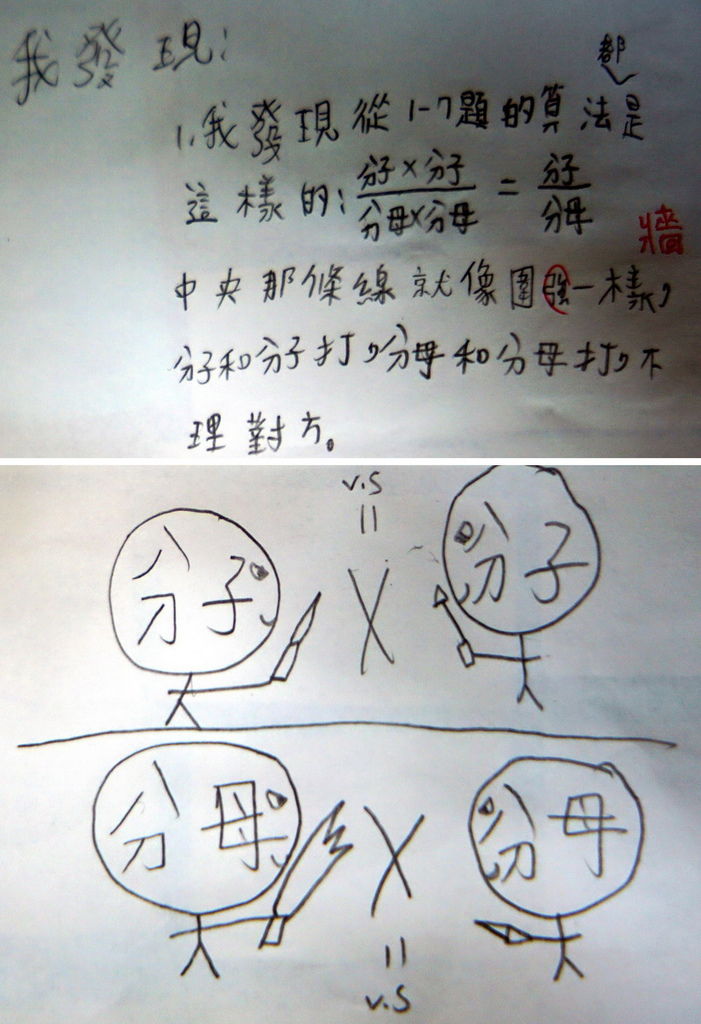 我發現:
都
1.我發現從1-7題的算法是
這樣的:分子×分子/分母×分母=分子/分母
牆
中央那條線就像圍強一樣,
分子和分子打,分母和分母打,不
理對方。
v.s
=
分子 × 分子
分母 × 分母
=
v.s